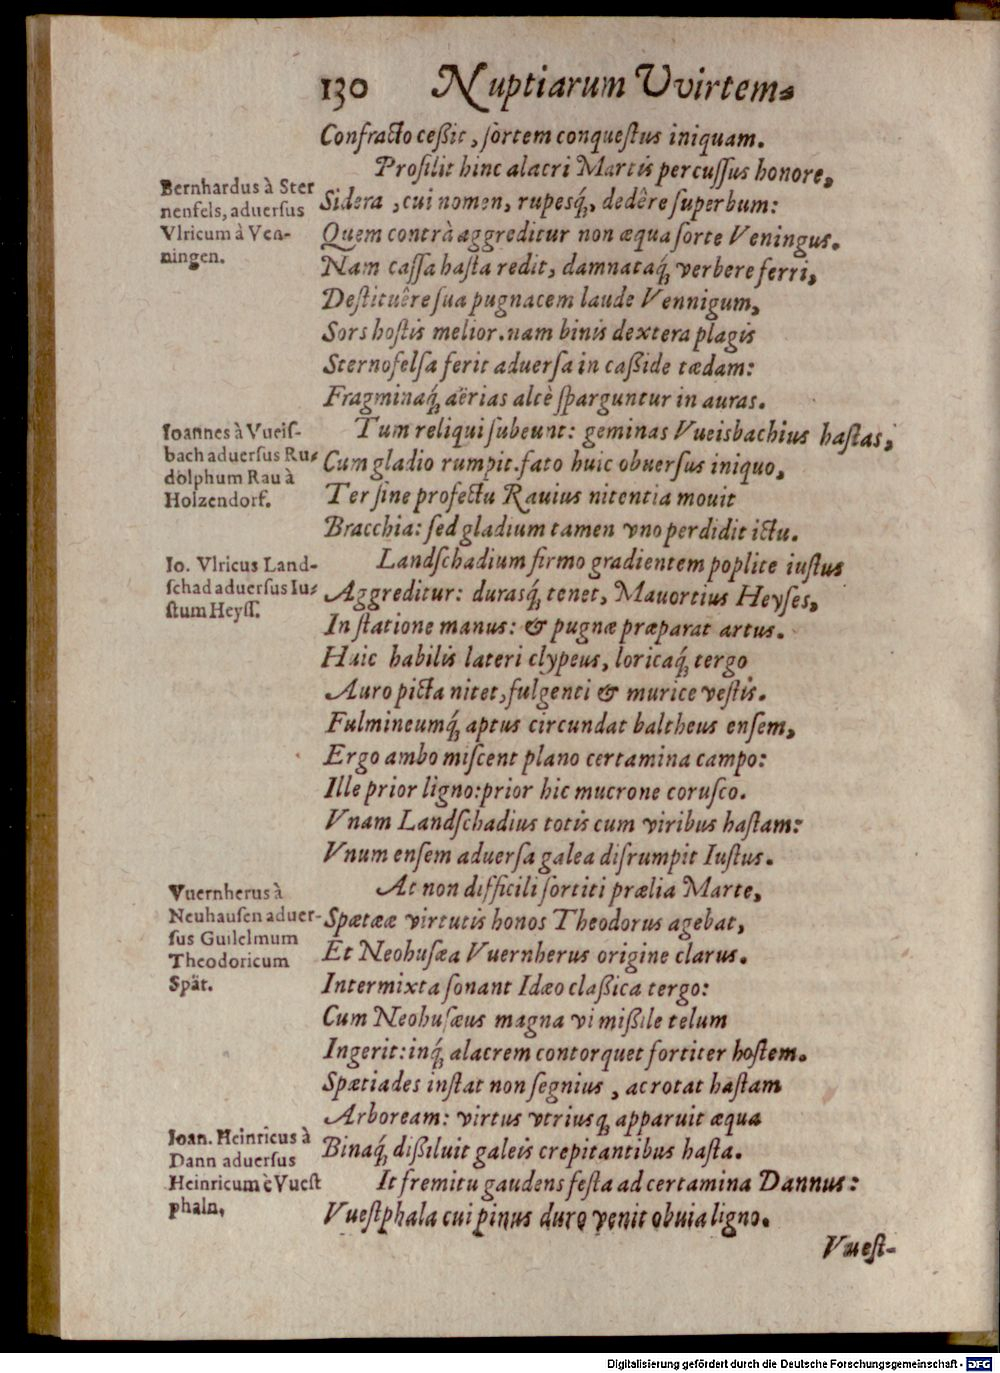 130 Nuptiarum Vvirtem-
Confracto ceßit, sortem conquestus iniquam.
Prosilit hinc alacri Martis percussus honore,
Bernhardus à Ster
nenfels, aduersus
Vlricum à Ven-
ningen.
Sidera, cui nomen, rupesq́;, dedêre superbum:
Quem contrà aggreditur non æqua sorte Veningus.
Nam cassa hasta redit, damnataq́; verbere ferri,
Destituêre sua pugnacem laude Vennigum,
Sors hostis melior. nam binis dextera plagis
Sternofelsa ferit aduersa in caßide tædam:
Fragminaq́; aërias altè sparguntur in auras.
Ioannes à Vueis-
bach aduersus Ru-
dolphum Rau à
Holzendorf.
Tum reliqui subeunt: geminas Vueisbachius hastas,
Cum gladio rumpit. fato huic obuersus iniquo,
Ter sine profectu Rauius nitentia mouit
Bracchia: sed gladium tamen vno perdidit ictu.
Io. Vlricus Land-
schad aduersus Iu-
stum Heyss.
Landschadium firmo gradientem poplite iustus
Aggreditur: durasq́; tenet, Mauortius Heyses,
In statione manus: & pugnæ præparat artus.
Huic habilis lateri clypeus, loricaq́; tergo
Auro picta nitet, fulgenti & murice vestis.
Fulmineumq́; aptus circundat baltheus ensem,
Ergo ambo miscent plano certamina campo:
Ille prior ligno: prior hic mucrone corusco.
Vnam Landschadius totis cum viribus hastam:
Vnum ensem aduersa galea disrumpit Iustus.
Vuernherus à
Neuhausen aduer-
sus Guilelmum
Theodoricum
Spät.
At non difficili sortiti prælia Marte,
Spætææ virtutis honos Theodorus agebat,
Et Neohusæa Vuernherus origine clarus.
Intermixta sonant Idæo claßica tergo:
Cum Neohusæus magna vi mißile telum
Ingerit: inq́; alacrem contorquet fortiter hostem.
Spætiades instat non segnius, ac rotat hastam
Arboream: virtus vtriusq; apparuit æqua
Binaq́; dißiluit galeis crepitantibus hasta.
Ioan. Heinricus à
Dann aduersus
Heinricum è Vuest
phaln.
It fremitu gaudens festa ad certamina Dannus:
Vuestphala cui pinus duro venit obuia ligno.
Vuest-
Digitalisierung gefördert durch die Deutsche Forschungsgemeinschaft - DFG